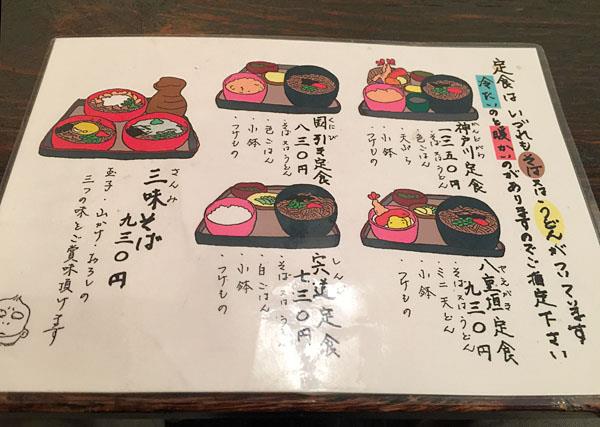 定食はいづれもそば又はうどんがついてます
冷たいのと暖かいのがありますのでご指定下さい
かんどがわ
神戸川定食
一三五〇円
・そば又はうどん
・天ぷら
・色ごはん
・小鉢
・つけもの
やえがき
八重垣定食
九三〇円
・そば又はうどん
・ミニ天どん
・小鉢
・つけもの
くにびき
国引き定食
八三〇円
・そば又はうどん
・色ごはん
・小鉢
・つけもの
しんじ
宍道定食
七三〇円
・そば又はうどん
・白ごはん
・小鉢
・つけもの
さんみ
三味そば
九三〇円
玉子・山かけ・おろしの
三つの味をご賞味頂けます